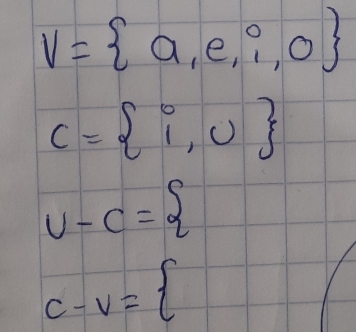 V = { a, e, i, o }
C = { i, u }
U - C = {
C - V = {